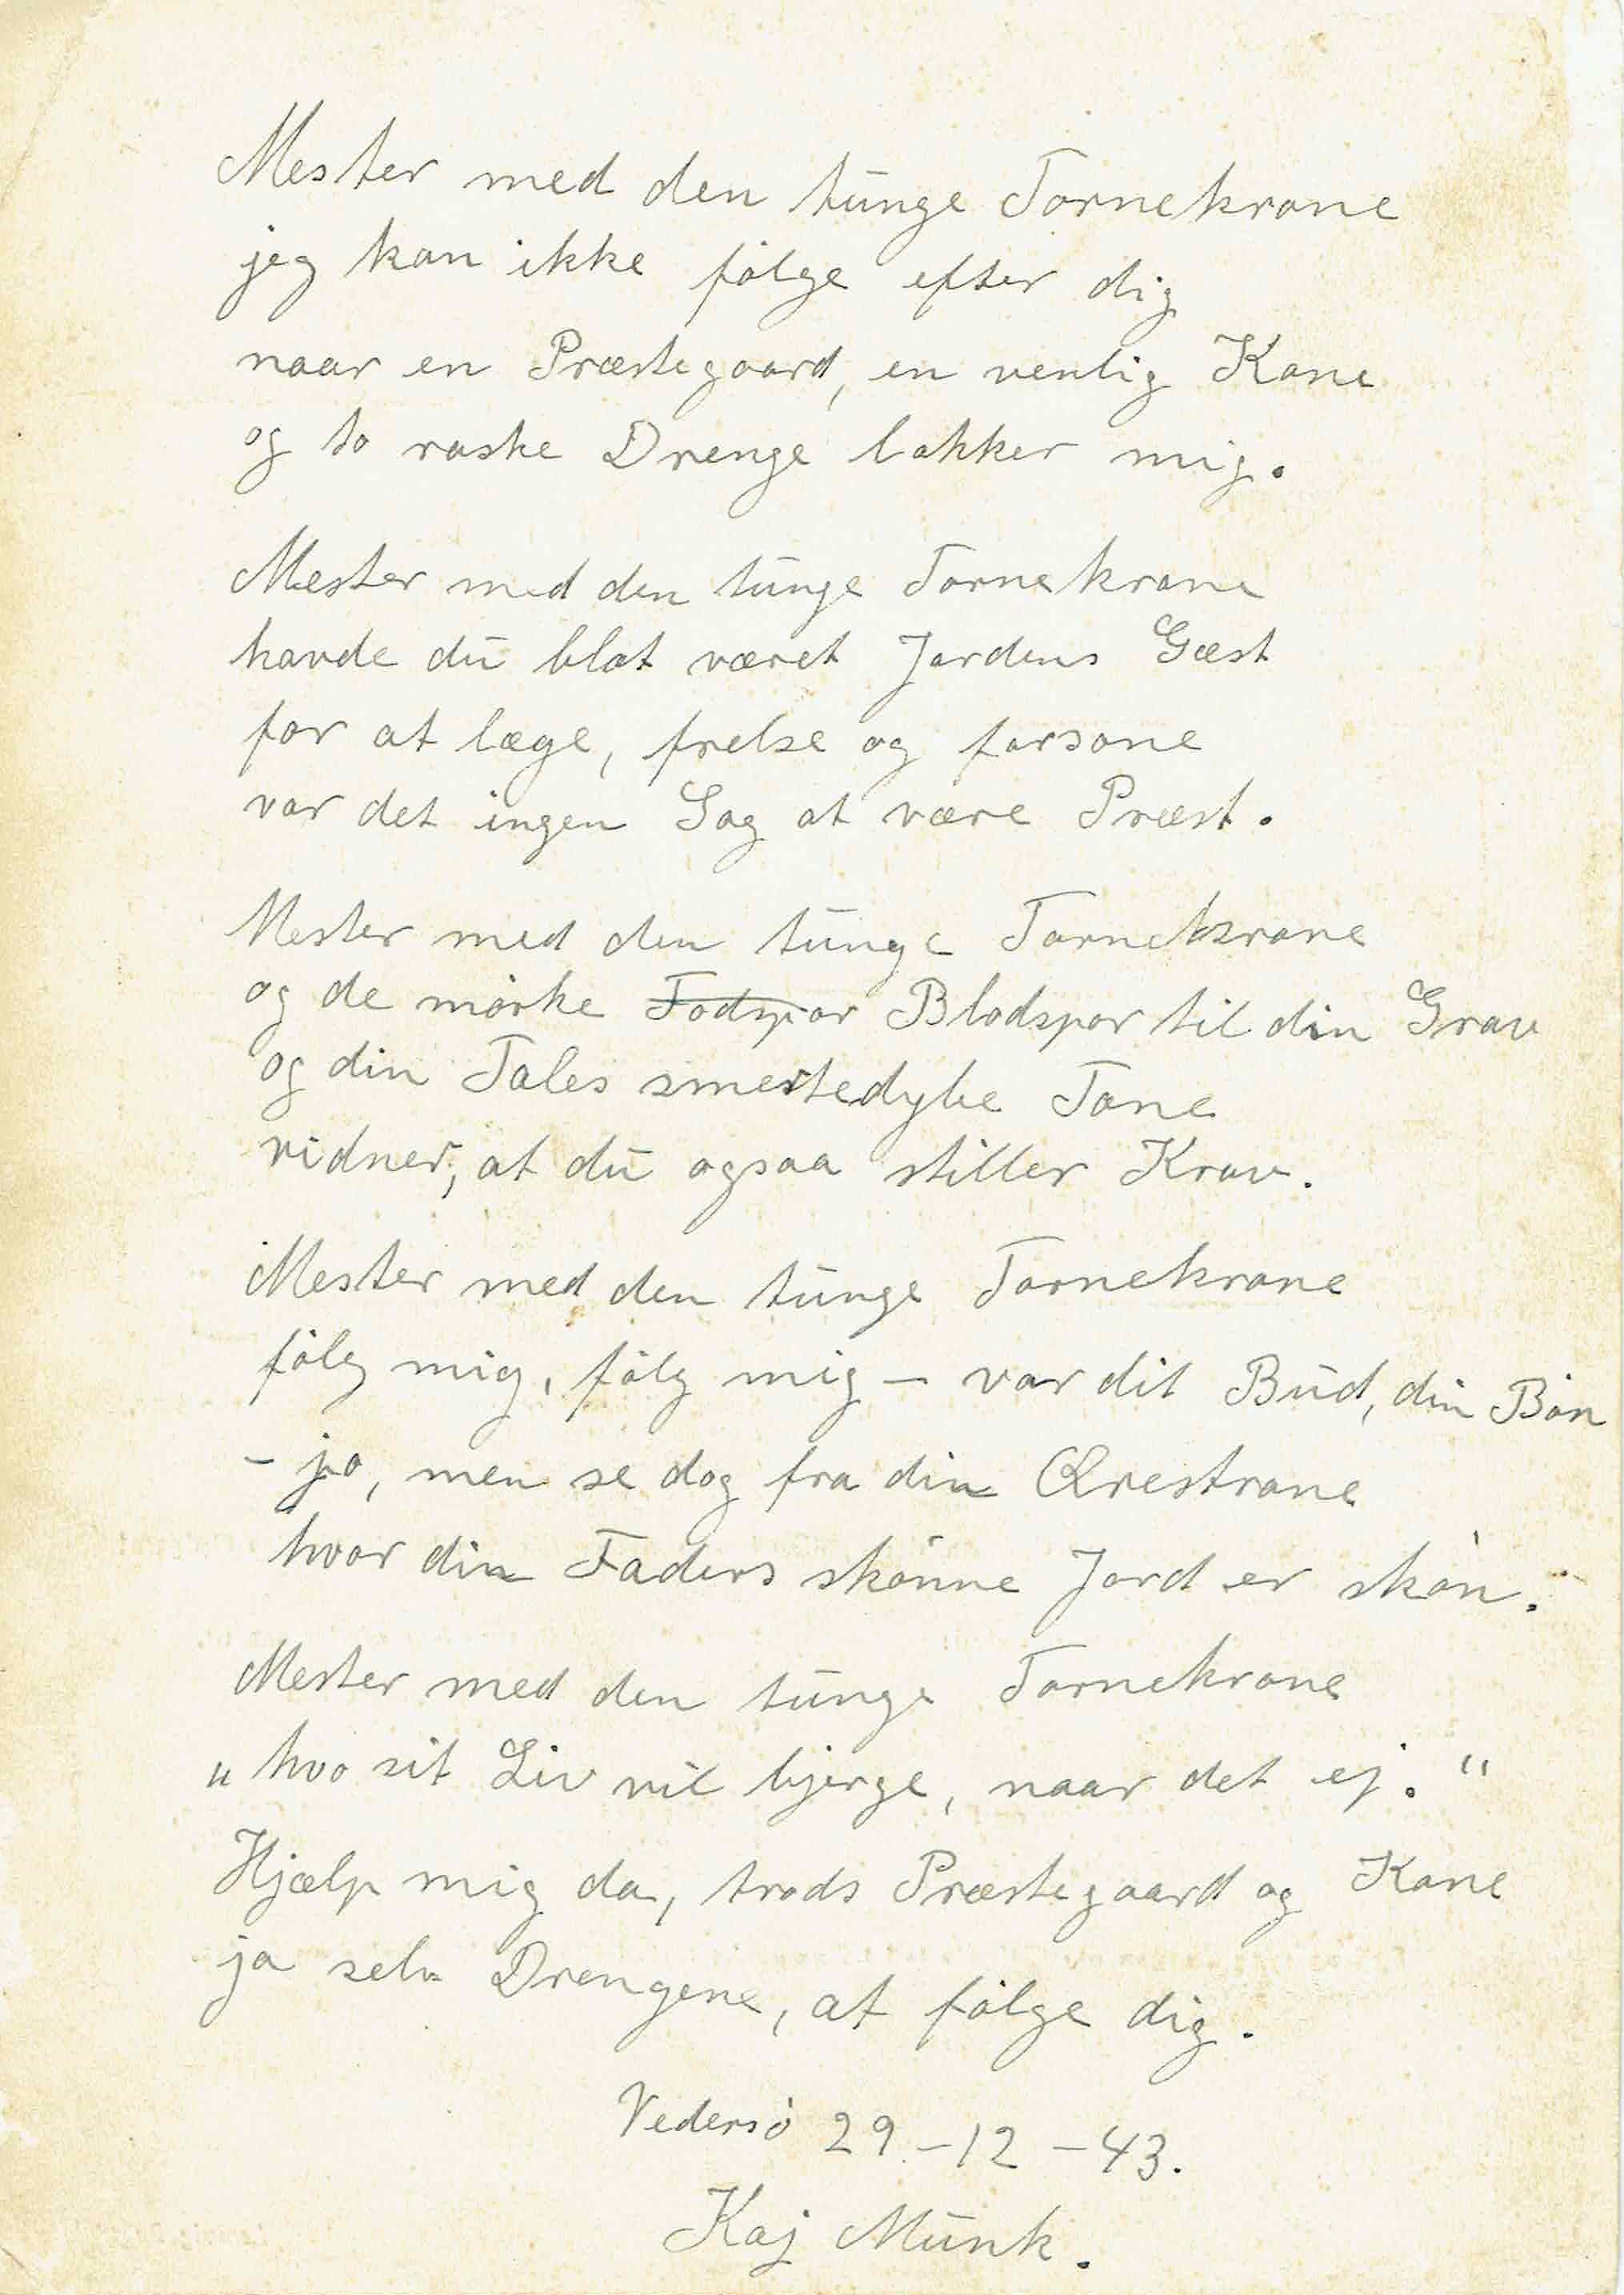 Mester med den tunge Tornekrone
jeg kan ikke følge efter dig
naar en Præstegaard, en venlig Kone
og to raske Drenge lokker mig.
Mester med den tunge Tornekrone
havde du blot været Jordens Gæst
for at læge, frelse og forsone
var det ingen Sag at være Præst.
Mester med den tunge Tornekrone
og de mørke Fodspor Blodspor til din Grav
og din Tales smertedybe Tone
vidner, at du ogsaa stiller Krav.
Mester med den tunge Tornekrone
følg mig, følg mig – var dit Bud, din Bøn
– jo, men se dog fra din Ærestrone
hvor din Faders skønne Jord er skøn.
Mester med den tunge Tornekrone
„hvo sit Liv vil bjerge, naar det ej."
Hjælp mig da, trods Præstegaard og Kone
ja selv Drengene, at følge dig.
Vedersø 29–12–43.
Kaj Munk.